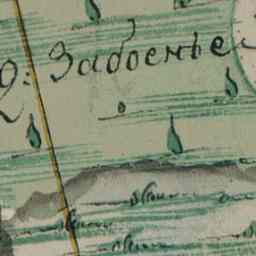 Д: Забоенье